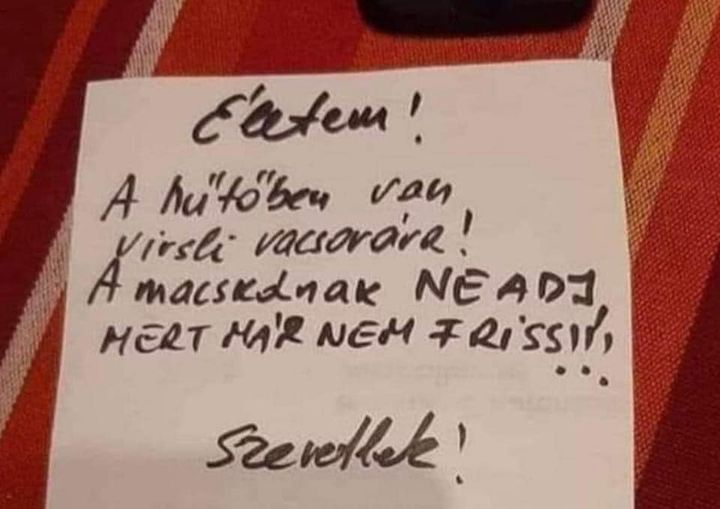 Életem!
A hűtőben van
virsli vacsorára!
A macskának NE ADJ,
MERT MÁR NEM FRISS!!!
Szeretlek!